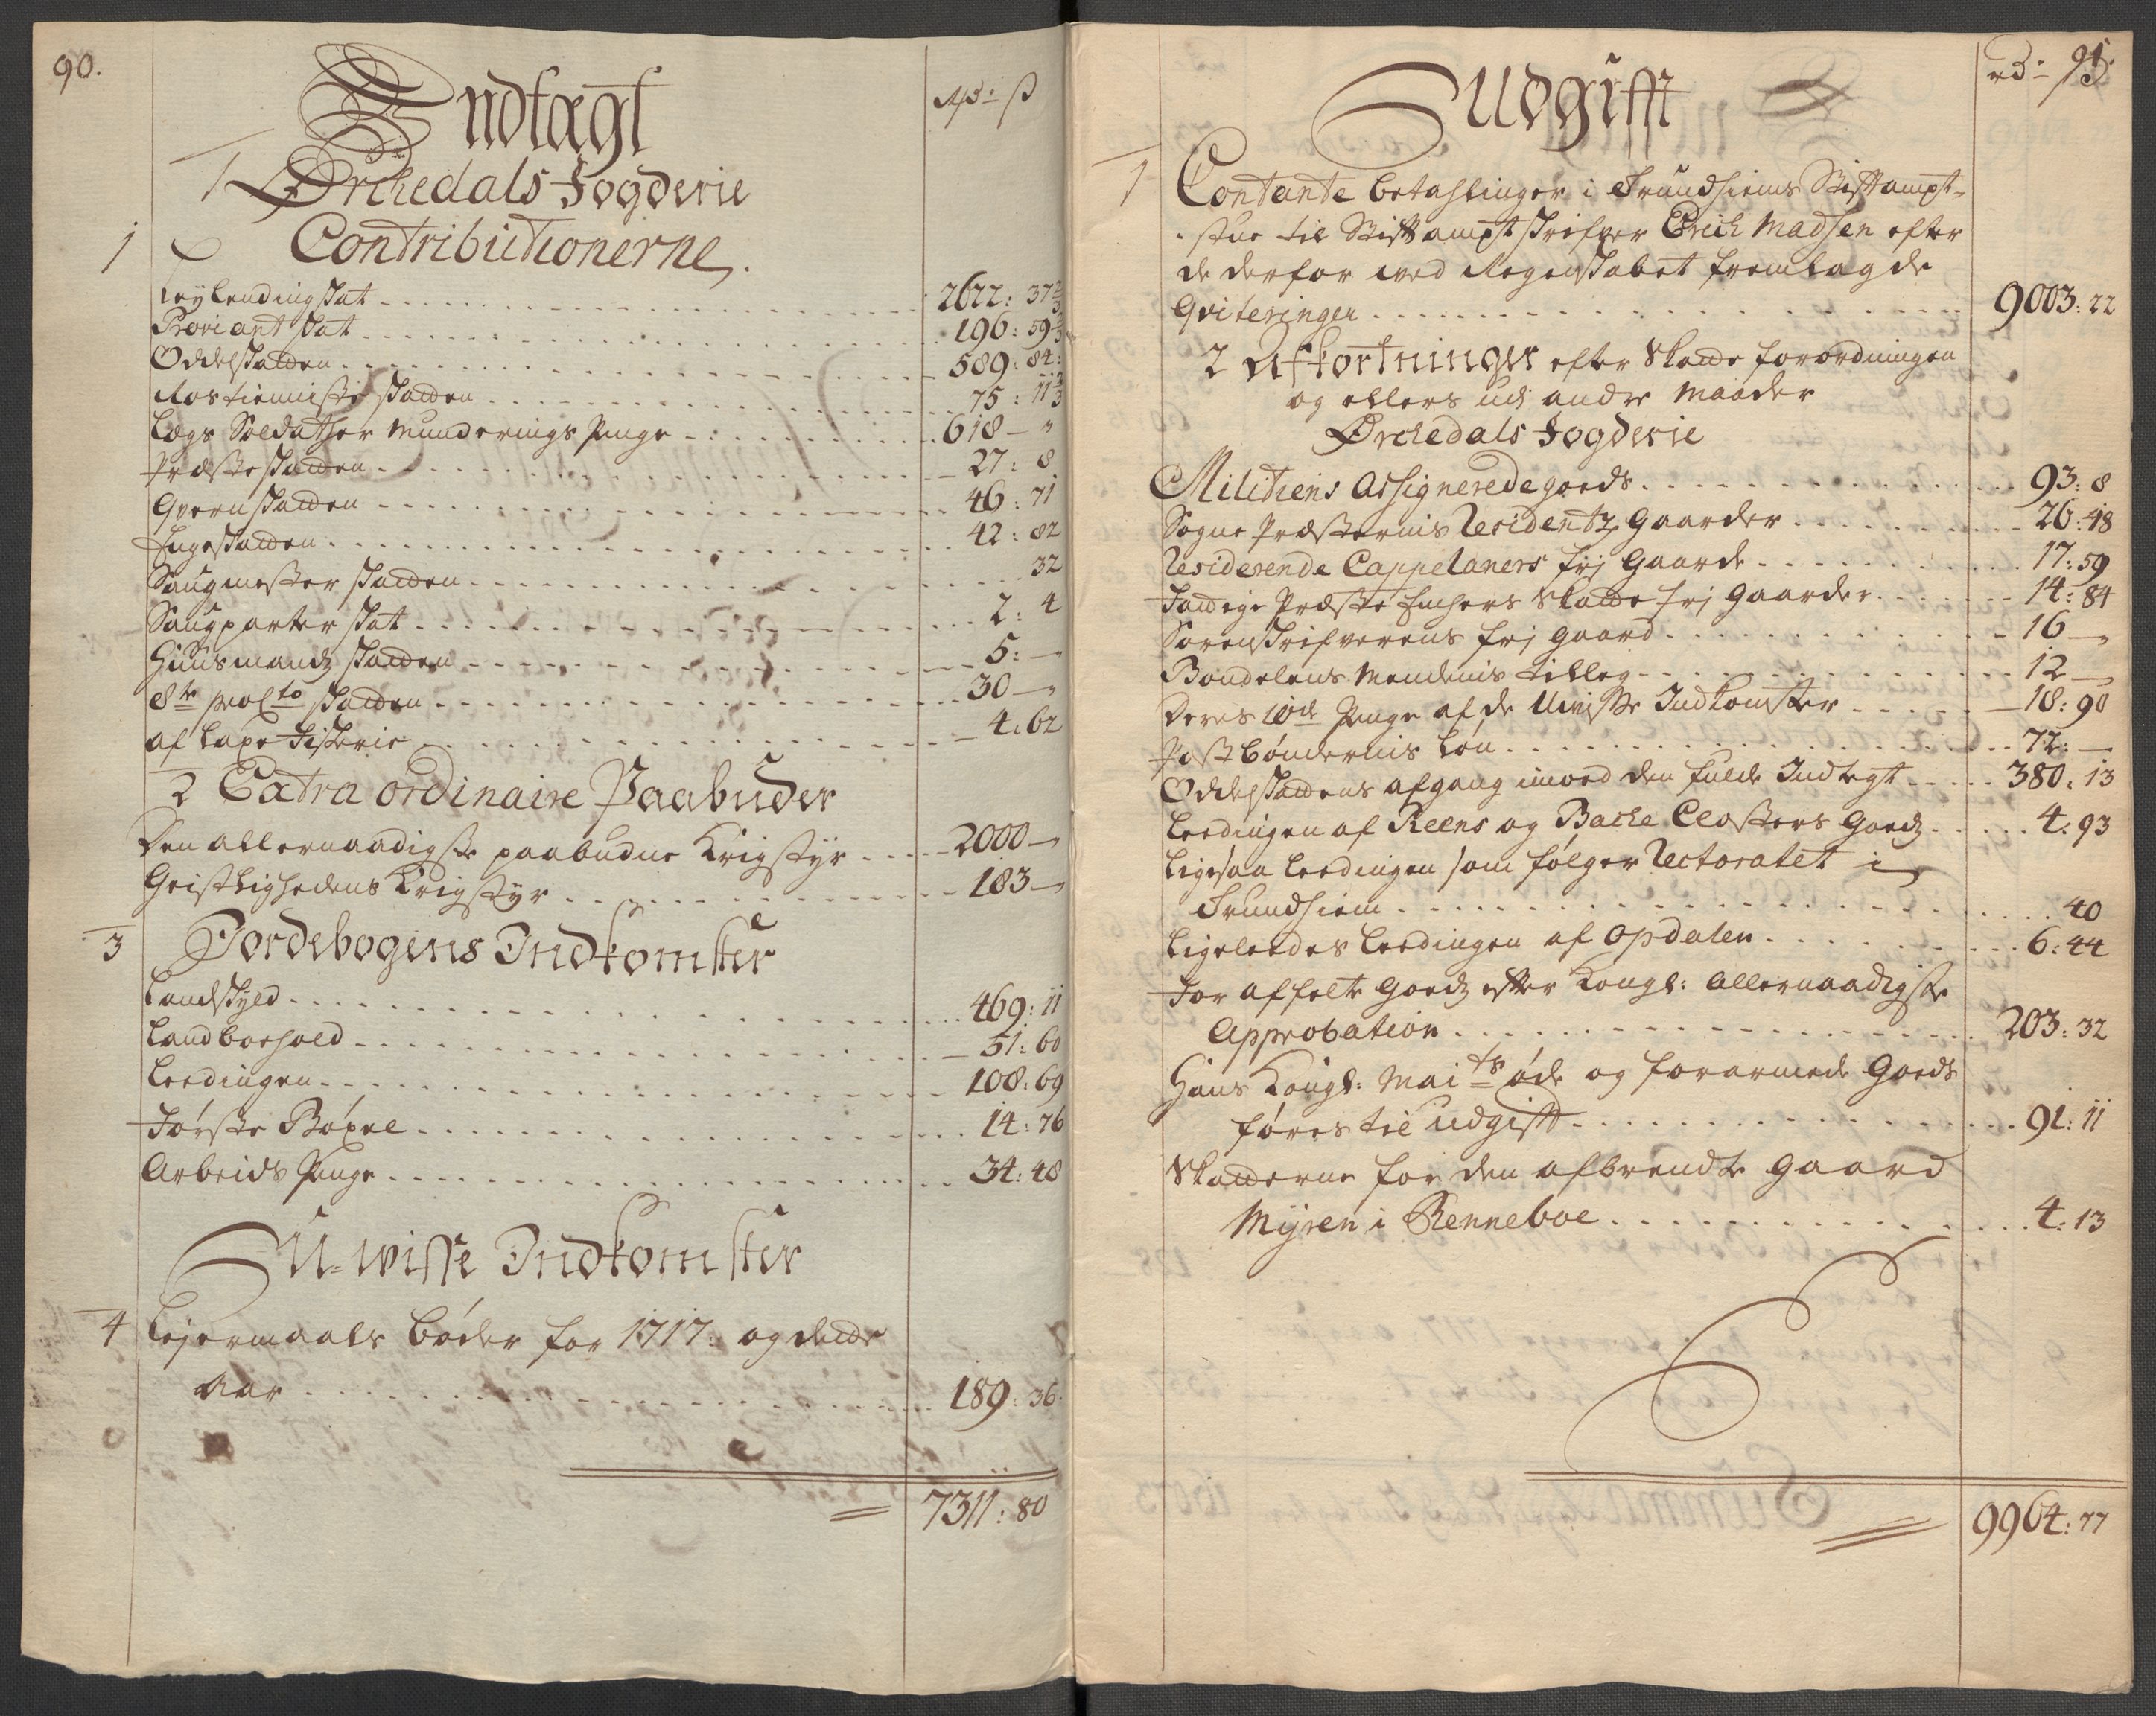 90.
Indtægt
Rdr: ß
1 Ørchedals Fogderie
1 Contributionerne.
Leylendingskat 2622: 37 2/3
Proviant skat 196: 59 2/3
Oddelskatten 589: 84:
Rostienniste skatten 75: 11 2/3
Legs Soldather Munderings Penge 618 - "
Præsteskatten 27: 8
Qvernskatten 46: 71
Fogeskatten 42: 82
Saugmester skatten 32
Saugparter skat 2: 4
Huusmands skatten 5: -
8te proCto skatten 30 -
af Laxe Fisterie 4: 62
2 Extra ordinaire Paabuder
Den allernaadigste paabudne Krigstyr 2000 -
Geistlighedens Krigstyr 183 -
3 Jordebogens Indkomster
Landskyld 469: 11
Landboehold 51: 60
Leedingen 108: 69
Første Böxel 14: 76
Arbeids Penge 34: 48
U-wisse Indkomster
4 Lejermaals bøder for 1717: og dette
Aar 189: 36.
7311: 80
Udgifft
rd: 91.
1 Contante betahlinger i Trundhiems Stiftampt-
stue til Stiftamptskrifver Erich Madsen efter
de derfor wed Regenskabet fremlagde
Qviteringer 9003: 22
2 Afkortninger efter Skatte forordningen
og ellers udi andre Maader
Ørchedals Fogderie
Militiens Assignerede goeds 93: 8
Sogne Præsternis Residentz Gaarder 26: 48
Residerende Cappelaners frj Gaarde 17: 59
Fattige Præste Enchers Skatte frj Gaarder 14: 84
Sorenskrifverens frj gaard 16 -
Bondelens Mendenis tilleg 12 -
Deres 10de Penge af de Uvisse Indkomster 18: 90
Postbøndernis Løn 72: -
Oddelskattens afgang imod den fulde Indtegt 380: 13
Leedingen af Reens og Bache Closters Goedz 4: 93
Ligesaa Leedingen som følger Rectoratet i
Trundhiem 40
Ligeleedes Leedingen af Opdalen 6: 44
For affelte Goedz efter Kongl: Allernaadigste
Approbation 203: 32
Hans Kongl: Maits øde og forarmede Goeds
føres til udgift 91: 11
Skatterne for den afbrendte gaard
Myren i Renneboe 4: 13
9964: 77